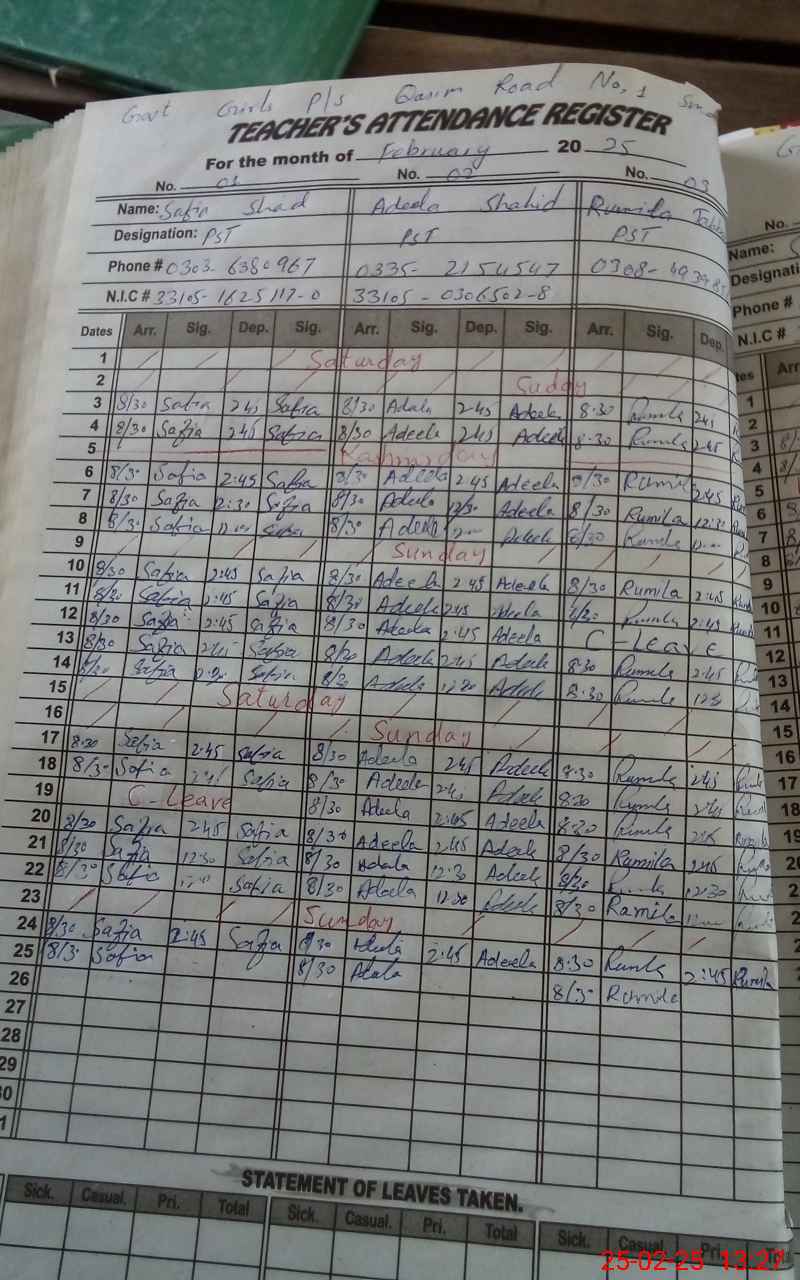 Govt Girls P/S Qasim Road No, 1
TEACHER'S ATTENDANCE REGISTER
For the month of February 2025
No. 01 No. 02 No. 03
Name: Safia Shad Adeela Shahid Rumila
Designation: PST PST PST
Phone # 0303-6380967 0335-2154547 0308-
N.I.C # 33105-1625117-0 33105-0306502-8
Dates Arr. Sig. Dep. Sig. Arr. Sig. Dep. Sig. Arr. Sig. Dep.
1 Saturday
2 Suday
3 8/30 Safia 245 Safia 8/30 Adala 2-45 Adeela 8-30 Rumila 245
4 8/30 Safia 245 Safia 8/30 Adeela 245 Adeela 8-30 Rumila 2-45
5 Kashmir day
6 8/30 Safia 2:45 Safia 8/30 Adeela 2:45 Adeela 8/30 Rumila 2:45
7 8/30 Safia 2:30 Safia 8/30 Adeela 12/30 Adeela 8/30 Rumila 12:30
8 8/30 Safia Safia 8/30 Adeela Adeela 8/30 Rumila
9 Sunday
10 8/30 Safia 2:45 Safia 8/30 Adeela 2:45 Adeela 8/30 Rumila 2:45
11 8/30 Safia 2:45 Safia 8/30 Adeela 245 Adeela 8/30 Rumila 2:45
12 8/30 Safia 2:45 Safia 8/30 Adeela 2:45 Adeela C-Leave
13 8/30 Safia 245 Safia 8/30 Adeela 2:45 Adeela 8:30 Rumila 2:45
14 8/30 Safia 12:30 Safia 8/30 Adeela 12:30 Adeela 8:30 Rumila 12:30
15 Saturday
16 Sunday
17 8:30 Safia 2:45 Safia 8/30 Adeela 245 Adeela 8:30 Rumila 245
18 8/30 Safia 2:45 Safia 8/30 Adeela 2:45 Adeela 8:30 Rumila 2:45
19 C-Leave 8/30 Adeela 2:45 Adeela 8:30 Rumila 2:45
20 8/30 Safia 2:45 Safia 8/30 Adeela 2:45 Adeela 8/30 Rumila 2:45
21 8/30 Safia 12:30 Safia 8/30 Adala 12:30 Adeela 8/30 Rumila 12:30
22 8/30 Safia Safia 8/30 Adeela Adeela 8/30 Ramila
23 Sunday
24 8/30 Safia 2:45 Safia 8/30 Adeela 2:45 Adeela 8:30 Rumila 2:45 Rumila
25 8/30 Safia 8/30 Adala 8/30 Rumila
26
27
28
29
30
STATEMENT OF LEAVES TAKEN.
Sick. Casual. Pri. Total Sick. Casual. Pri. Total Sick. Casual. Pri.
No.
Name:
Phone #
N.I.C #
Arr
1
2
3
4
5
6
7
8
9
10
11
12
13
14
15
16
17
18
19
25-02-25 13:27